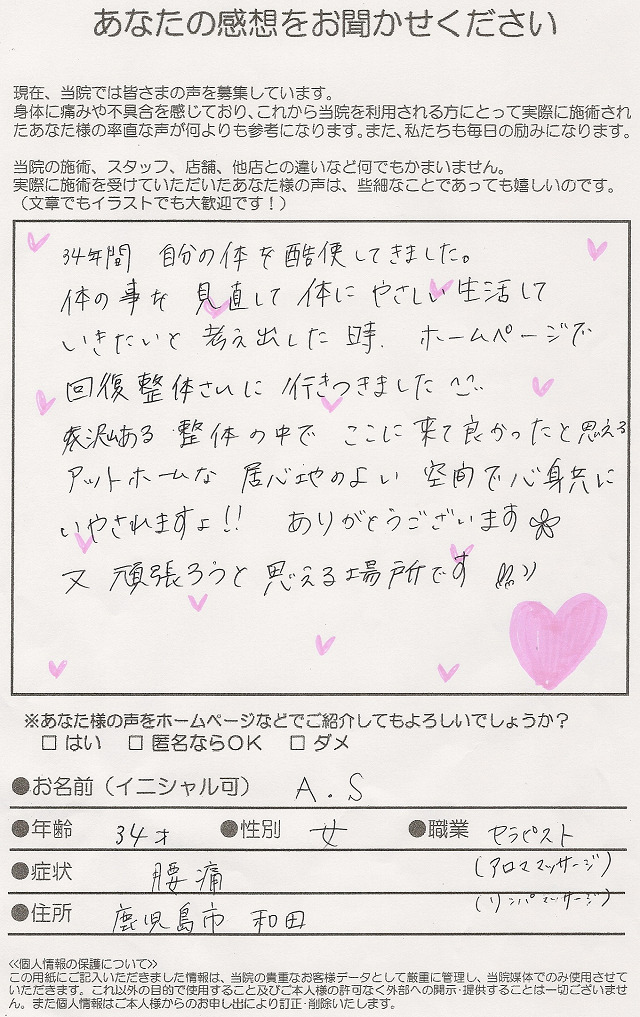 あなたの感想をお聞かせください
現在、当院では皆さまの声を募集しています。
身体に痛みや不具合を感じており、これから当院を利用される方にとって実際に施術され
たあなた様の率直な声が何よりも参考になります。また、私たちも毎日の励みになります。
当院の施術、スタッフ、店舗、他店との違いなど何でもかまいません。
実際に施術を受けていただいたあなた様の声は、些細なことであっても嬉しいのです。
（文章でもイラストでも大歓迎です！）
34年間 自分の体を酷使してきました。
体の事を 見直して 体に やさしい 生活して
いきたいと 考え出した 時、ホームページで
回復整体さんに 行きつきました
沢山ある 整体の中で ここに 来て 良かったと 思える
アットホームな 居心地のよい 空間で 心身共に
いやされますよ!! ありがとうございます
又 頑張ろうと 思える 場所です
※あなた様の声をホームページなどでご紹介してもよろしいでしょうか？
□ はい □ 匿名ならOK □ ダメ
●お名前（イニシャル可） A.S
●年齢 34才 ●性別 女 ●職業 セラピスト
(アロママッサージ)
●症状 腰痛
(リンパマッサージ)
●住所 鹿児島市 和田
<<個人情報の保護について>>
この用紙にご記入いただきました情報は、当院の貴重なお客様データとして厳重に管理し、当院媒体でのみ使用させて
いただきます。これ以外の目的で使用すること及びご本人様の許可なく外部への開示・提供することは一切ございませ
ん。また個人情報はご本人様からのお申し出により訂正・削除いたします。